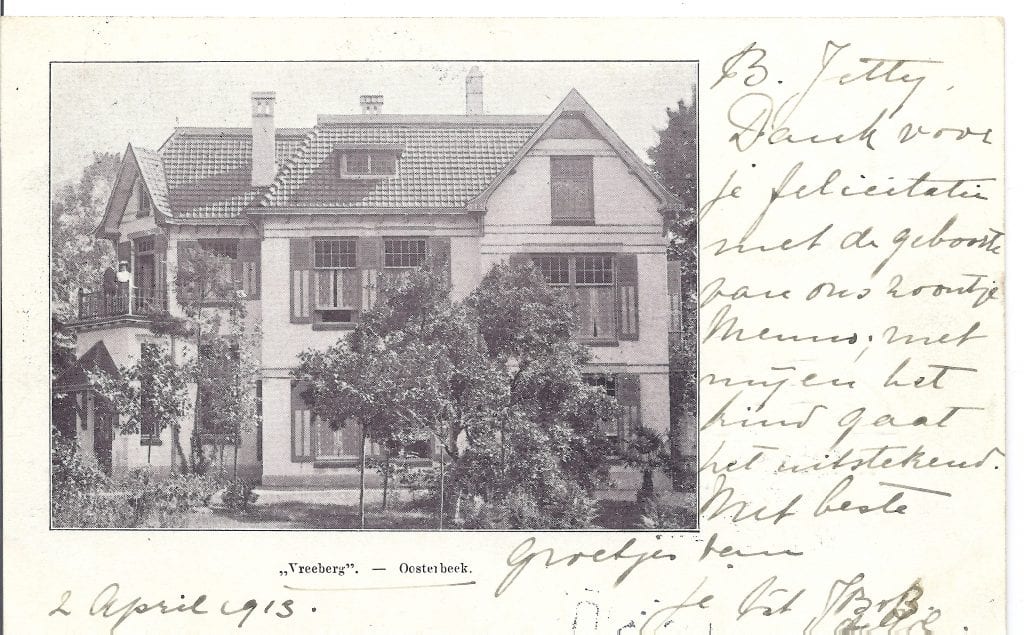 B. Jetty,
Dank voor
je felicitatie
met de geboorte
van ons zoontje
Menno; met
mij en het
kind gaat
het uitstekend.
Met beste
Groetjes van
je
„Vreeberg". — Oosterbeek.
2 April 1913.